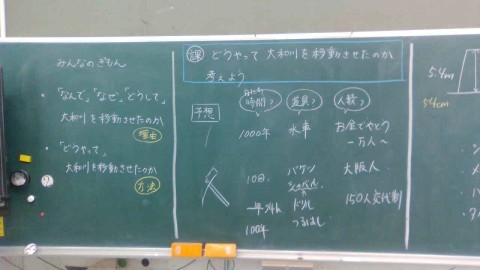 みんなのぎもん
・「なんで」「なぜ」「どうして」
大和川を移動させたのか
理由
・「どうやって」
大和川を移動させたのか
方法
課 どうやって大和川を移動させたのか
考えよう
予想
時間?
道具?
人数?
1000年
水車
お金でやとう
一万人〜
10日
バケツ
シャベル
大阪人
ドリル
150人交代制
100年
つるはし
5.4m
54cm